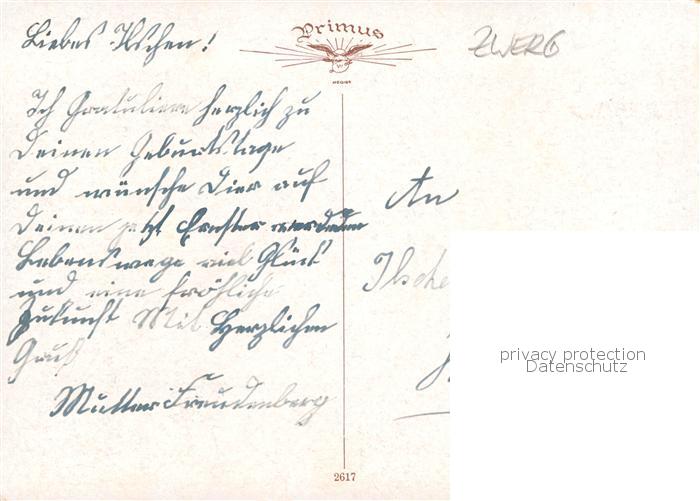 Liebes Ilschen!
Primus
ZWERG
Ich Gratuliere herzlich zu
Deinen Geburtstage
und wünsche Dier auf
Deinen jetzt Ernster werdenden
Lebenswege viel Glück
und eine fröhliche
Zukunft Mit Herzlichen
Gruß
Mutter Freudenberg
An
Ilsche
privacy protection
Datenschutz
2617